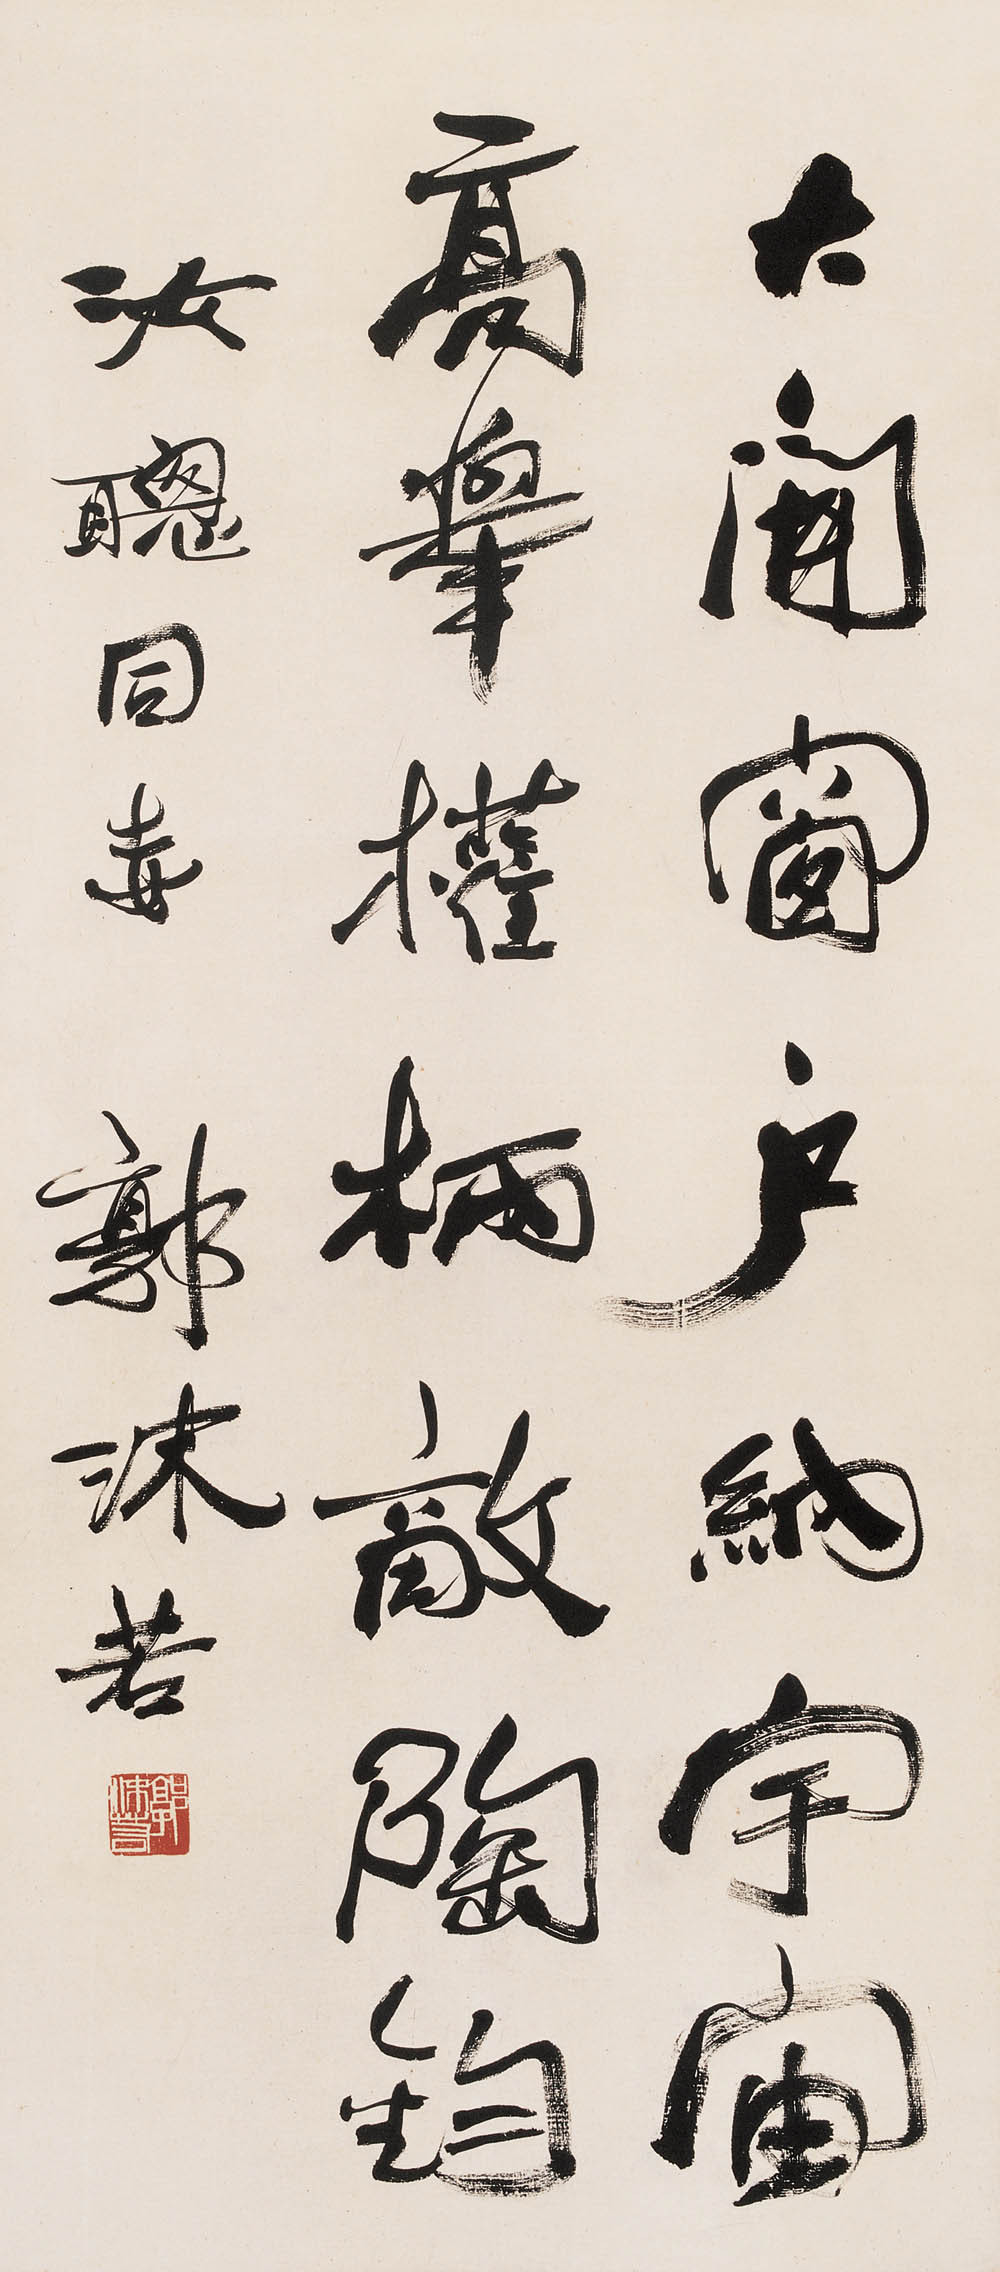 大開窗戶納宇宙
高舉權柄敵陶鈞
汝聰同志
郭沫若
郭沫若